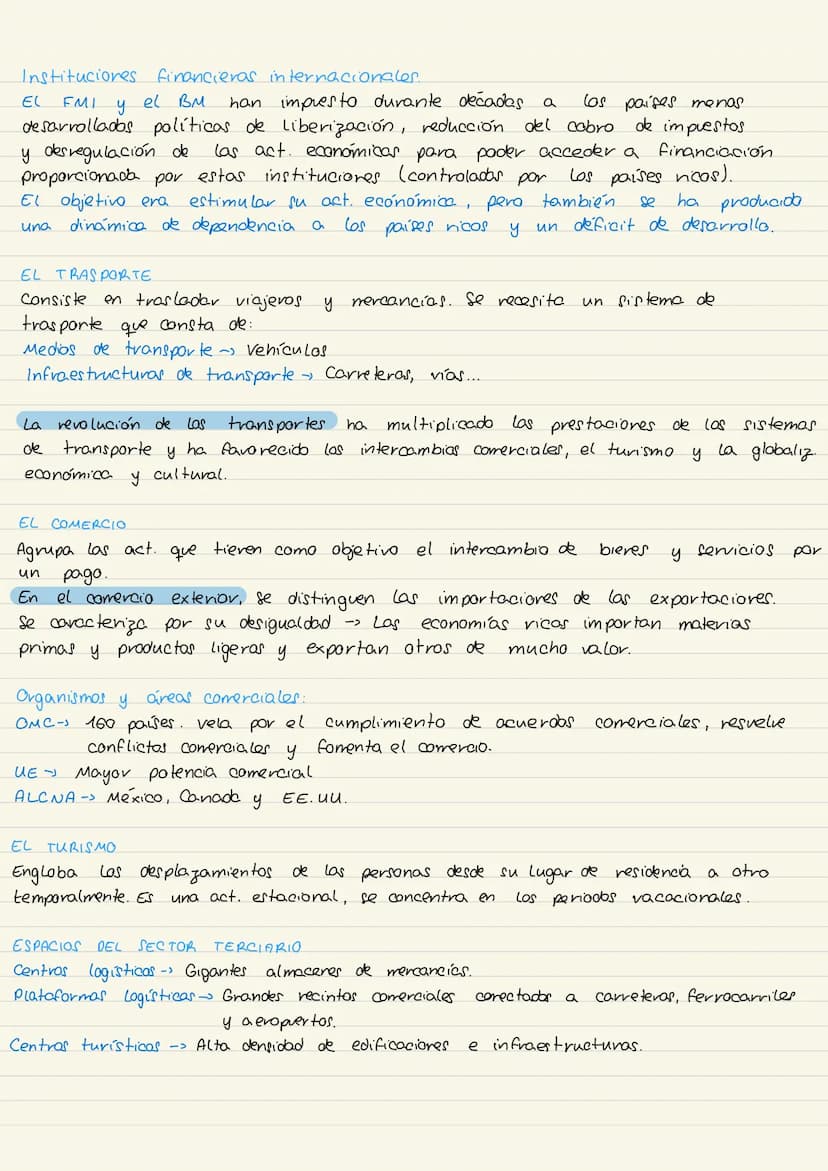 Instituciones financieras internacionales.
El FMI y el BM han impuesto durante décadas a los países menos
desarrollados políticas de liberización, reducción del cobro de impuestos
y desregulación de las act. económicas para poder acceder a financiación
proporcionada por estas instituciones (controladas por los países ricos).
El objetivo era estimular su act. económica, pero también se ha producido
una dinámica de dependencia a los países ricos y un déficit de desarrollo.
EL TRASPORTE
Consiste en trasladar viajeros y mercancías. Se necesita un sistema de
trasporte que consta de:
Medios de transporte → Vehículos
Infraestructuras de transporte → Carreteras, vías...
La revolución de los transportes ha multiplicado las prestaciones de los sistemas
de transporte y ha favorecido los intercambios comerciales, el turismo y la globaliz.
económica y cultural.
EL COMERCIO
Agrupa las act. que tienen como objetivo el intercambio de bienes y servicios por
un pago.
En el comercio exterior, se distinguen las importaciones de las exportaciones.
Se caracteriza por su desigualdad → Las economías ricas importan materias
primas y productos ligeros y exportan otros de mucho valor.
Organismos y áreas comerciales:
OMC → 160 países. vela por el cumplimiento de acuerdos comerciales, resuelve
conflictos comerciales y fomenta el comercio.
UE → Mayor potencia comercial
ALCNA → México, Canada y EE.UU.
EL TURISMO
Engloba los desplazamientos de las personas desde su lugar de residencia a otro
temporalmente. Es una act. estacional, se concentra en los periodos vacacionales.
ESPACIOS DEL SECTOR TERCIARIO
Centros logísticos → Gigantes almacenes de mercancías.
Plataformas logísticas → Grandes recintos comerciales conectados a carreteras, ferrocarriles
y aeropuertos.
Centros turísticos → Alta densidad de edificaciones e infraestructuras.